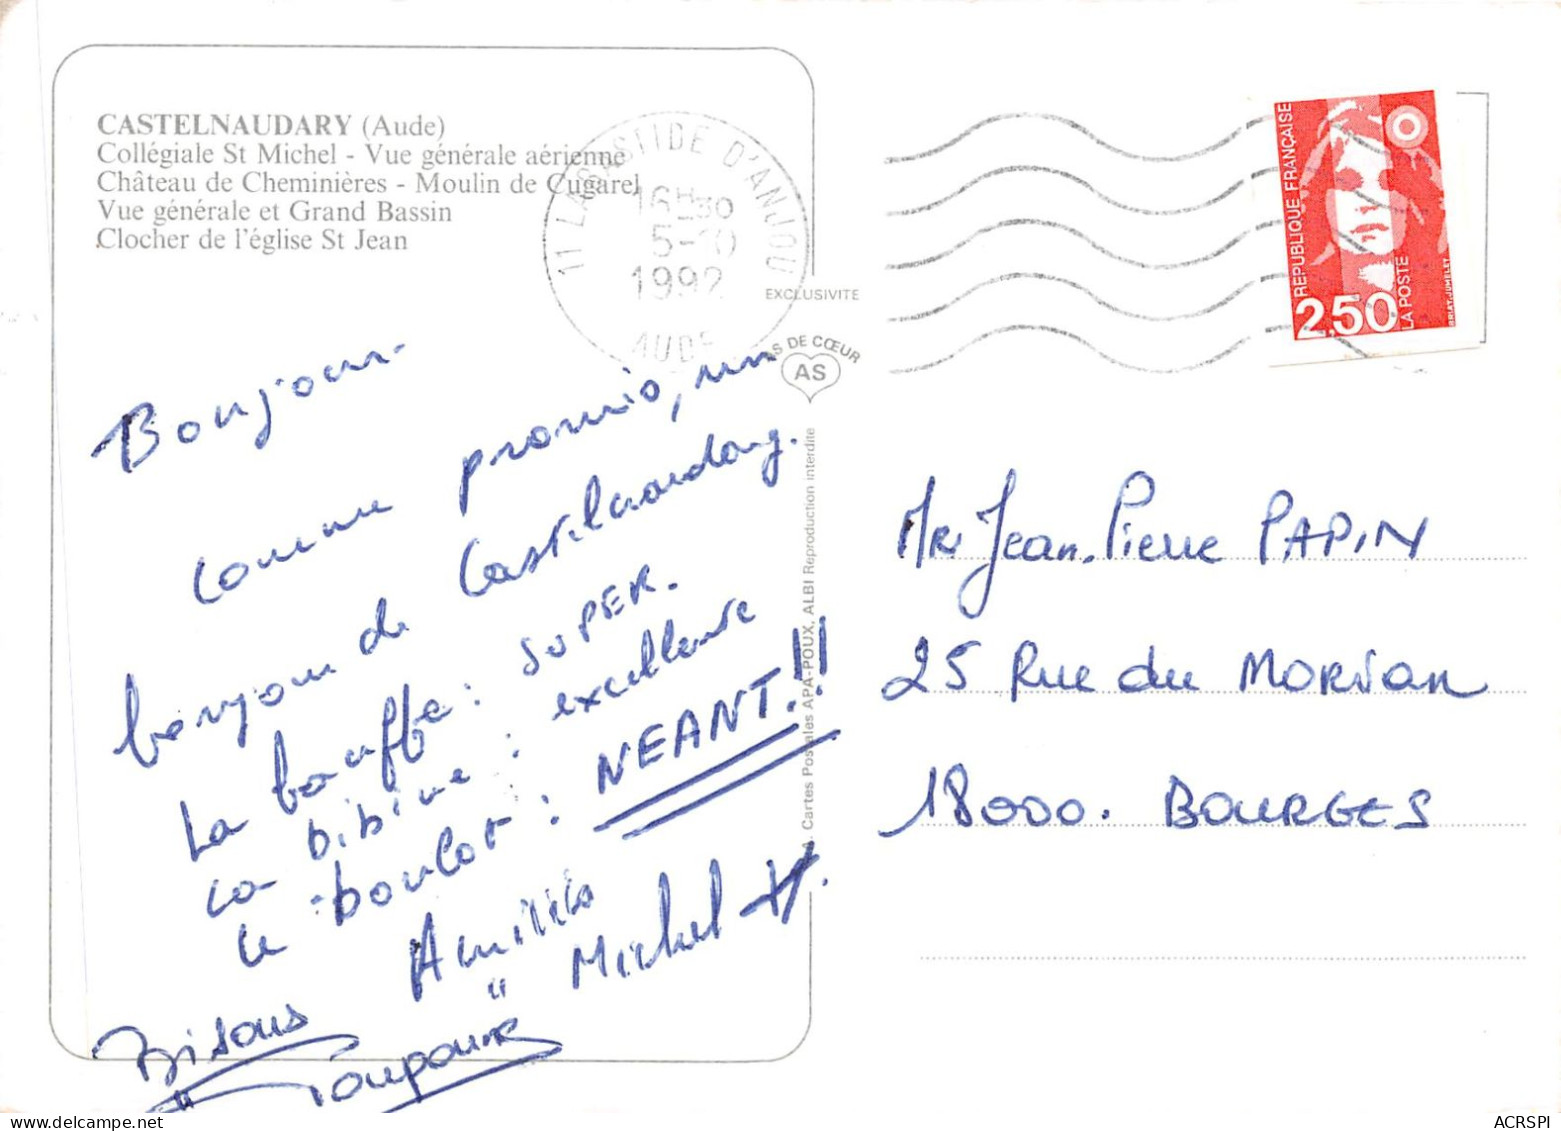 CASTELNAUDARY (Aude)
Collégiale St Michel - Vue générale aérienne
Château de Cheminières - Moulin de Cugarel
Vue générale et Grand Bassin
Clocher de l'église St Jean
11 LABASTIDE D'ANJOU
16H30
5-10
1992
AUDE
EXCLUSIVITE
AS DE CŒUR
AS
Cartes Postales APA-POUX, ALBI Reproduction interdite
REPUBLIQUE FRANÇAISE
2,50
LA POSTE
BRIAT.JUMELET
Bonjour
comme promis, un
bonjour de Castelnaudary.
La bouffe : SUPER.
la bibine : excellente
le boulot : NEANT.!!
Amitiés
Michel H.
Bisous
" "
Mr Jean-Pierre PAPIN
25 Rue du MORVAN
18000. BOURGES
ACRSPI